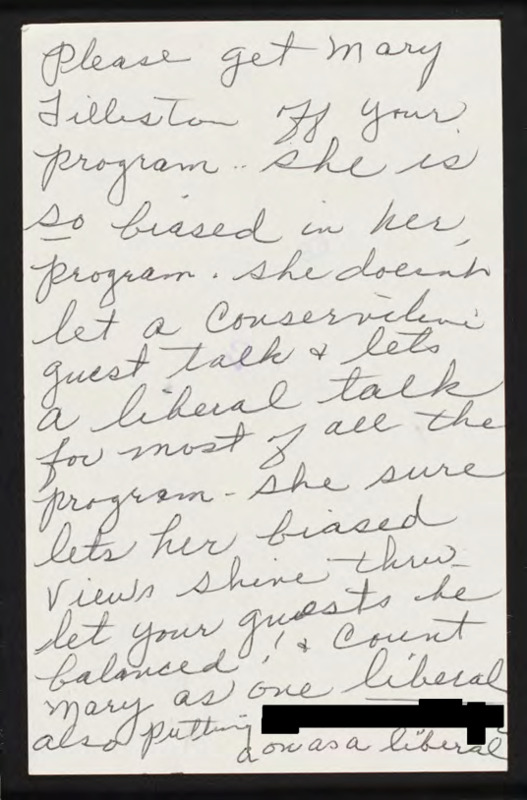 Please get Mary
Tilleston off your
program.. She is
so biased in her
program. She doesn't
let a Conservative
guest talk & lets
a liberal talk
for most of all the
program - She sure
lets her biased
views shine thru -
let your guests be
balanced! & Count
Mary as one liberal
also putting
on as a liberal